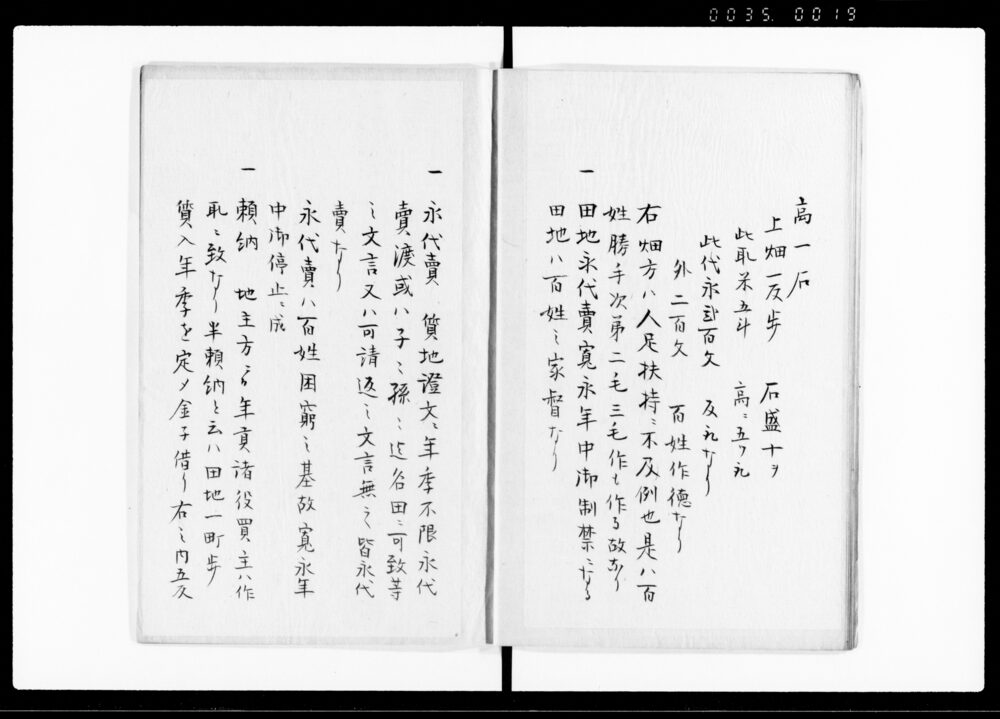 0035. 0019
高一石
上畑一反歩 石盛十ヲ
此取米五斗 高ニ五ツ取
此代永弐百文 反取なり
外二百文 百姓作徳なり
右畑方ハ人足扶持ニ不及例也是ハ百
姓勝手次第二毛三毛作も作る故なり
一 田地永代賣寛永年中御制禁ニなる
田地ハ百姓之家督なり
一 永代賣 質地證文ニ年季不限永代
賣渡或ハ子ニ孫ニ迄谷田ニ可致等
之文言又ハ可請返之文言無之皆永代
賣なり
永代賣ハ百姓困窮之基故寛永年
中御停止ニ成
一 頼納 地主方ゟ年貢諸役買主ハ作
取ニ致なり半頼納と云ハ田地一町歩
質入年季を定メ金子借り右之内五反